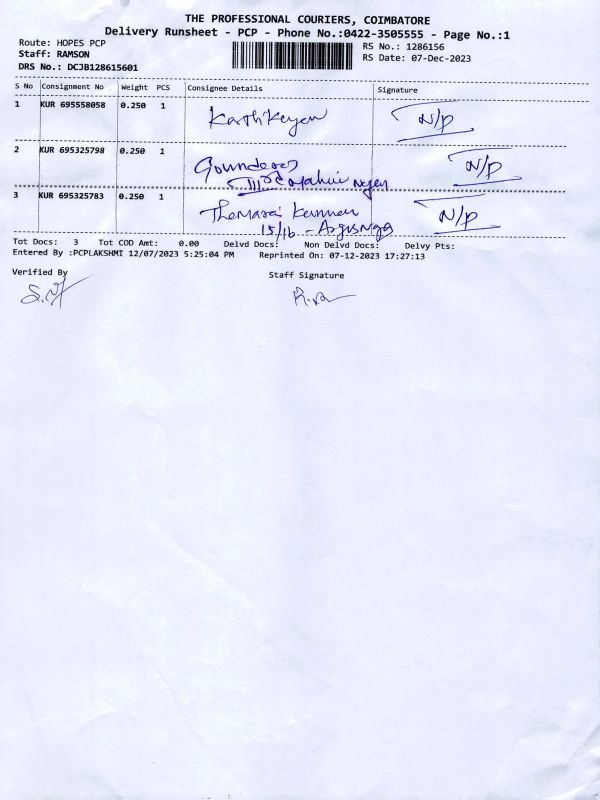 THE PROFESSIONAL COURIERS, COIMBATORE
Delivery Runsheet - PCP - Phone No.:0422-3505555 - Page No.:1
Route: HOPES PCP
Staff: RAMSON
DRS No.: DCJB128615601
RS No.: 1286156
RS Date: 07-Dec-2023
S No Consignment No Weight PCS Consignee Details Signature
1 KUR 695558058 0.250 1 Karthikeyan N/P
2 KUR 695325798 0.250 1 N/P
3 KUR 695325783 0.250 1 N/P
15/16 -
Tot Docs: 3 Tot COD Amt: 0.00 Delvd Docs: Non Delvd Docs: Delvy Pts:
Entered By :PCPLAKSHMI 12/07/2023 5:25:04 PM Reprinted On: 07-12-2023 17:27:13
Verified By Staff Signature